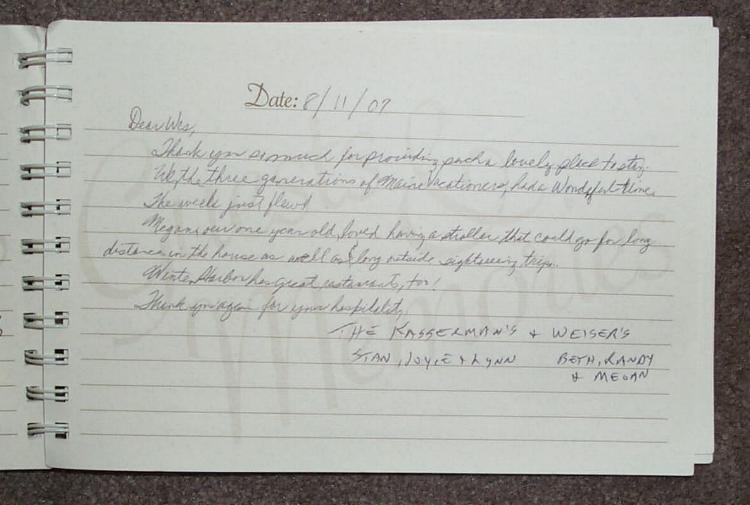 Date: 8/11/07
Dear Wes,
Thank you so much for providing such a lovely place to stay.
We, the three generations of Maine Vacationers, had a Wonderful time.
The week just flew!
Megan, our one year old, loved having a stroller that could go for long
distances in the house as well as long outside sightseeing trips.
Winter Harbor has great restaurants, too!
Thank you again for your hospitality,
THE KASSERMAN'S & WEISER'S
STAN, JOYCE & LYNN BETH, RANDY
& MEGAN
Memories